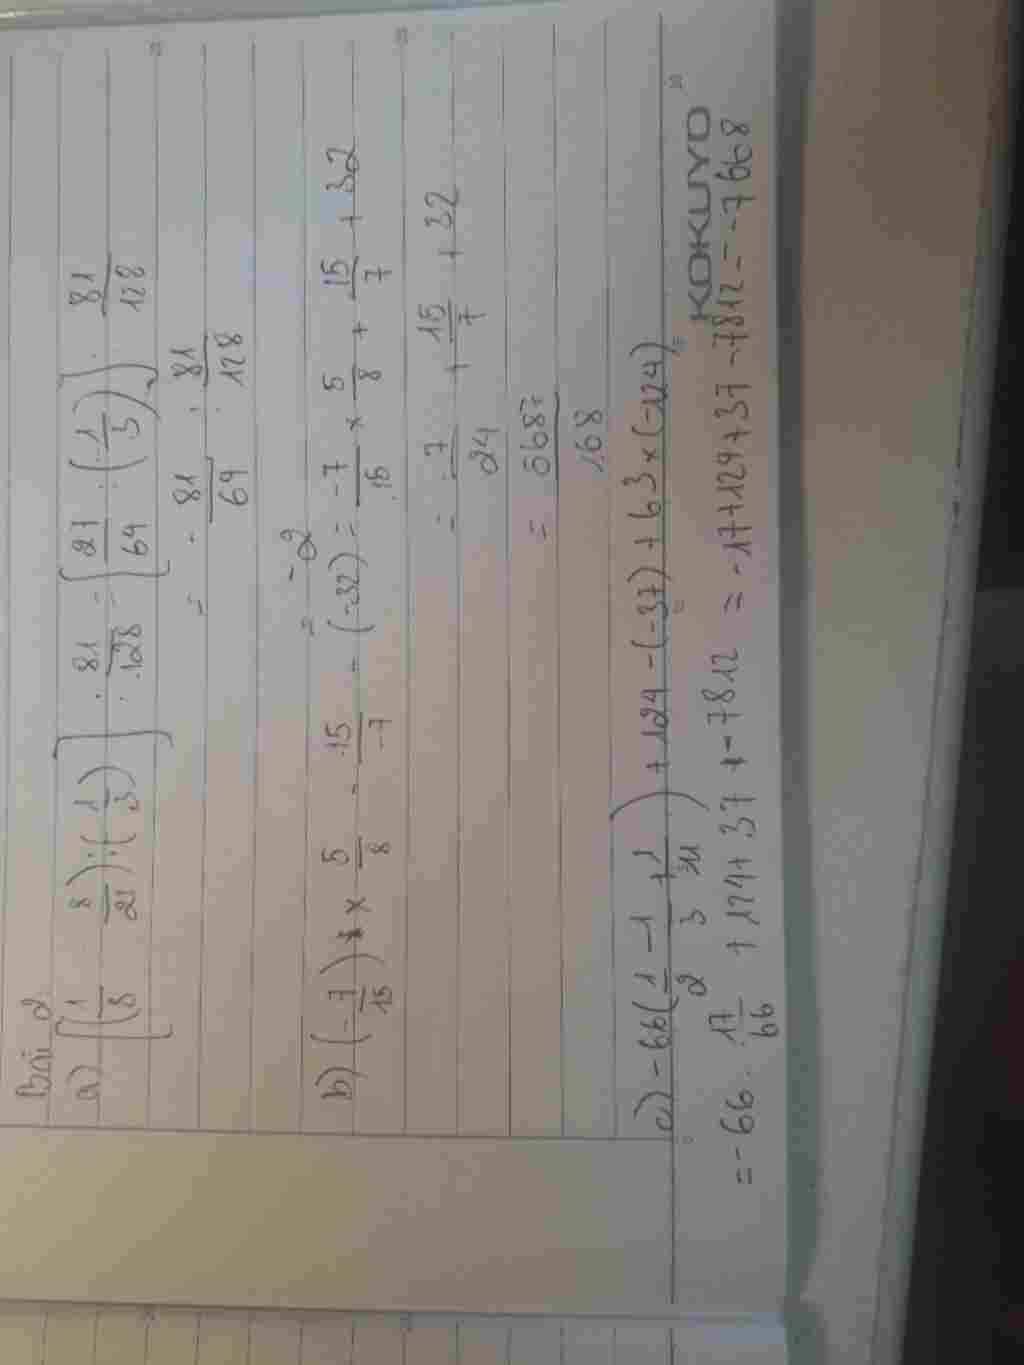 Bài 2
a) [(1/8 8/21) : (1/3)] : 81/128 = [27/64 : (-1/3)] : 81/128
= - 81/64 : 81/128
= -2
b) (-7/15) x 5/8 - 15/-7 - (-32) = -7/15 x 5/8 + 15/7 + 32
= -7/24 + 15/7 + 32
= 5687/168
c) -66(1/2 - 1/3 + 1/11) + 124 - (-37) + 63 x (-124)
KOKUYO
= -66 . 17/66 + 124 + 37 + -7812 = -17 + 124 + 37 - 7812 = -7668